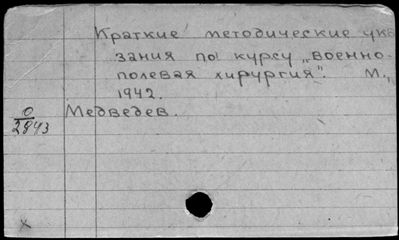 Краткие методические ука
зания по курсу „военно-
полевая хирургия". М.,
1942.
Медведев.
0
2843
x